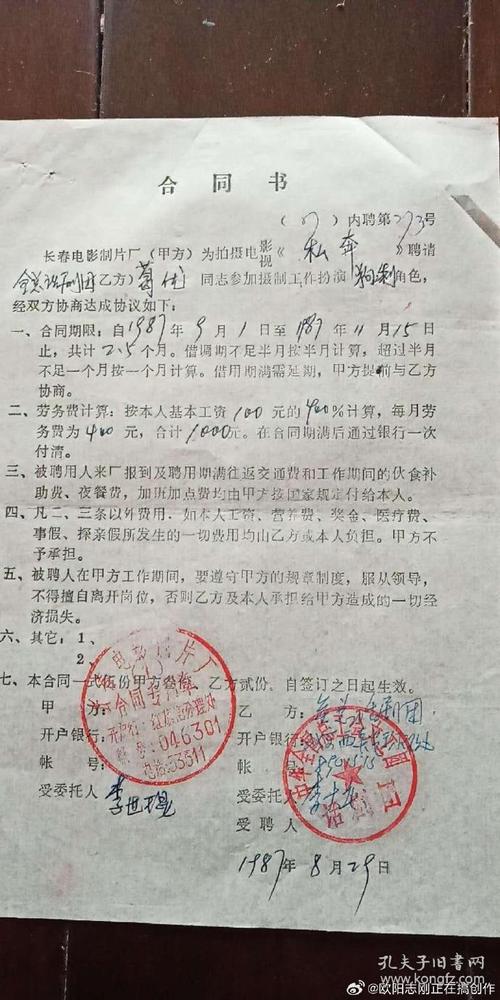 合同书
(87)内聘第273号
长春电影制片厂(甲方)为拍摄电影视《私奔》聘请
全总话剧团乙方)葛优同志参加摄制工作扮演角色,
经双方协商达成协议如下:
一、合同期限:自1987年9月1日至1987年11月15日
止,共计2.5个月。借调期不足半月按半月计算,超过半月
不足一个月按一个月计算。借用期满需延期,甲方提前与乙方
协商。
二、劳务费计算:按本人基本工资100元的400%计算,每月劳
务费为400元,合计1000元。在合同期满后通过银行一次
付清。
三、被聘用人来厂报到及聘用期满往返交通费和工作期间的伙食补
助费、夜餐费,加班加点费均由甲方按国家规定付给本人。
四、凡二、三条以外费用.如本人工资、营养费、奖金、医疗费、
事假、探亲假所发生的一切费用均由乙方或本人负担。甲方不
予承担。
五、被聘人在甲方工作期间,要遵守甲方的规章制度,服从领导,
不得擅自离开岗位,否则乙方及本人承担给甲方造成的一切经
济损失。
六、其它:1、
2、
七、本合同一式伍份甲方叁份,乙方贰份。自签订之日起生效。
甲方:
乙方:全总话剧团
开户银行:
开户银行:
帐号:
帐号:
受委托人
受委托人
受聘人
1987年8月29日
长春电影制片厂
合同专用章
046301
电话:53311
中华全国总工会文工团
话剧团
孔夫子旧书网
www.kongfz.com
@欧阳志刚正在搞创作